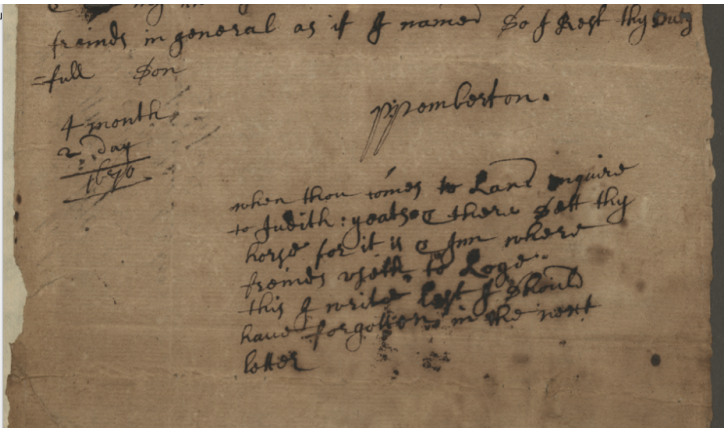 freinds in general as if I named So I Rest thy Duty
=full Son
4 month
2 day
1670
PPemberton.
when thou comes to Lan enquire
to Judith: yeats & there Sett thy
horse for it is & Inn where
freinds useth to Loge
this I write lest I Should
have forgotten in the next
letter